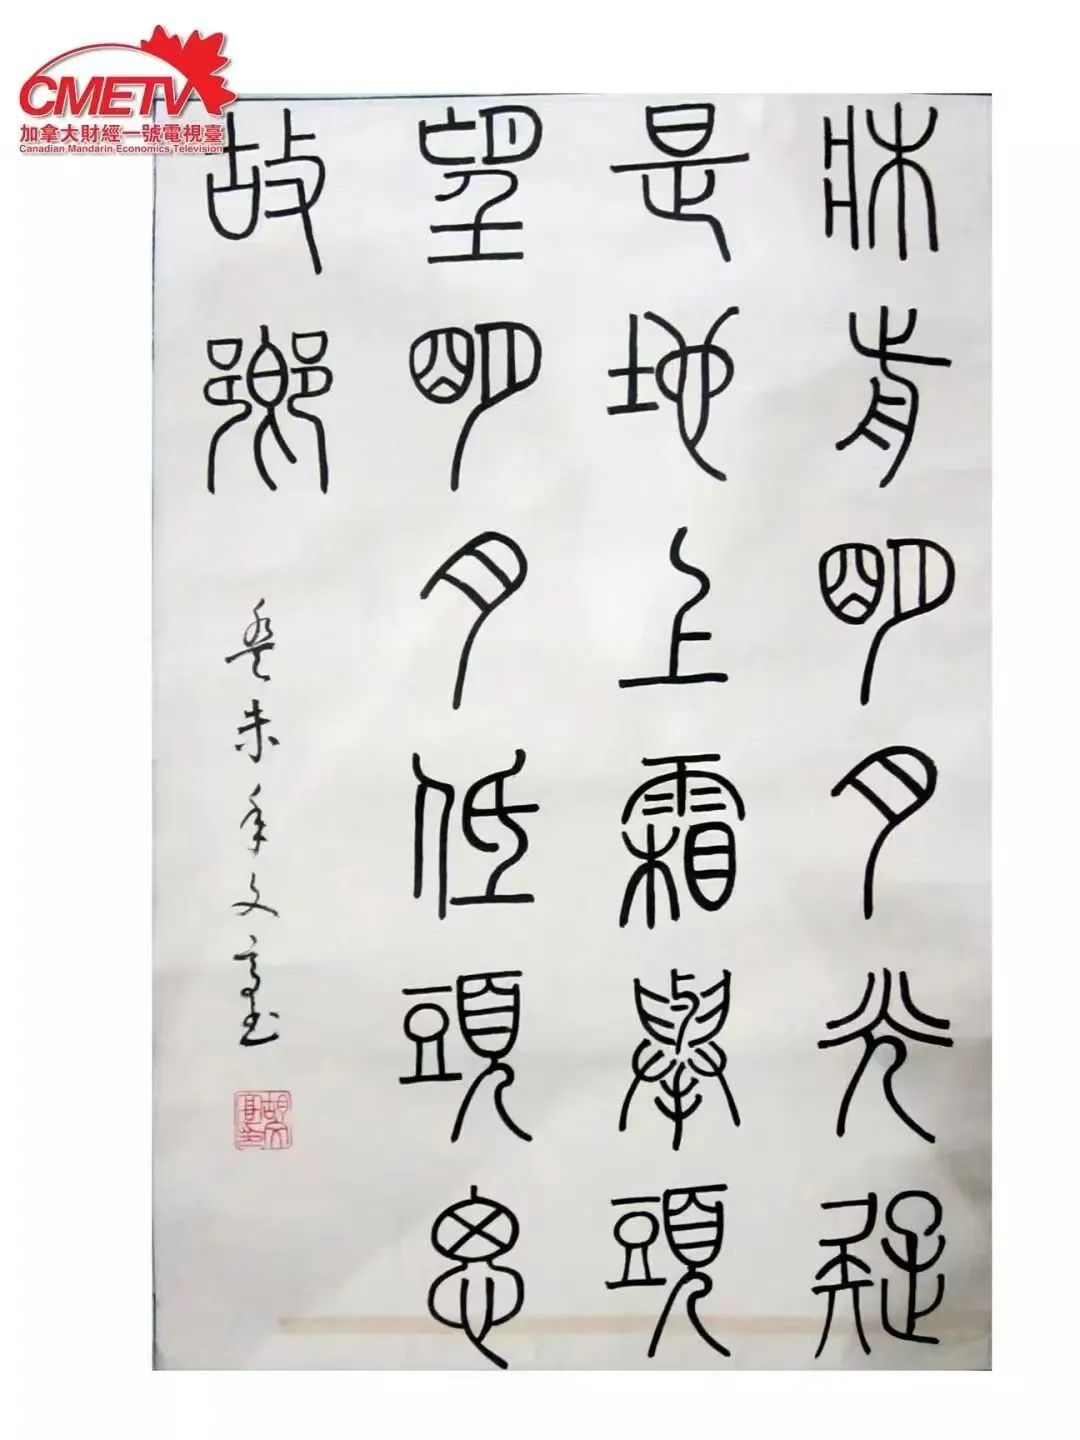 CMETV
加拿大財經一號電視臺
Canadian Mandarin Economics Television
牀前明月光疑
是地上霜舉頭
望明月低頭思
故鄉
癸未年文高书